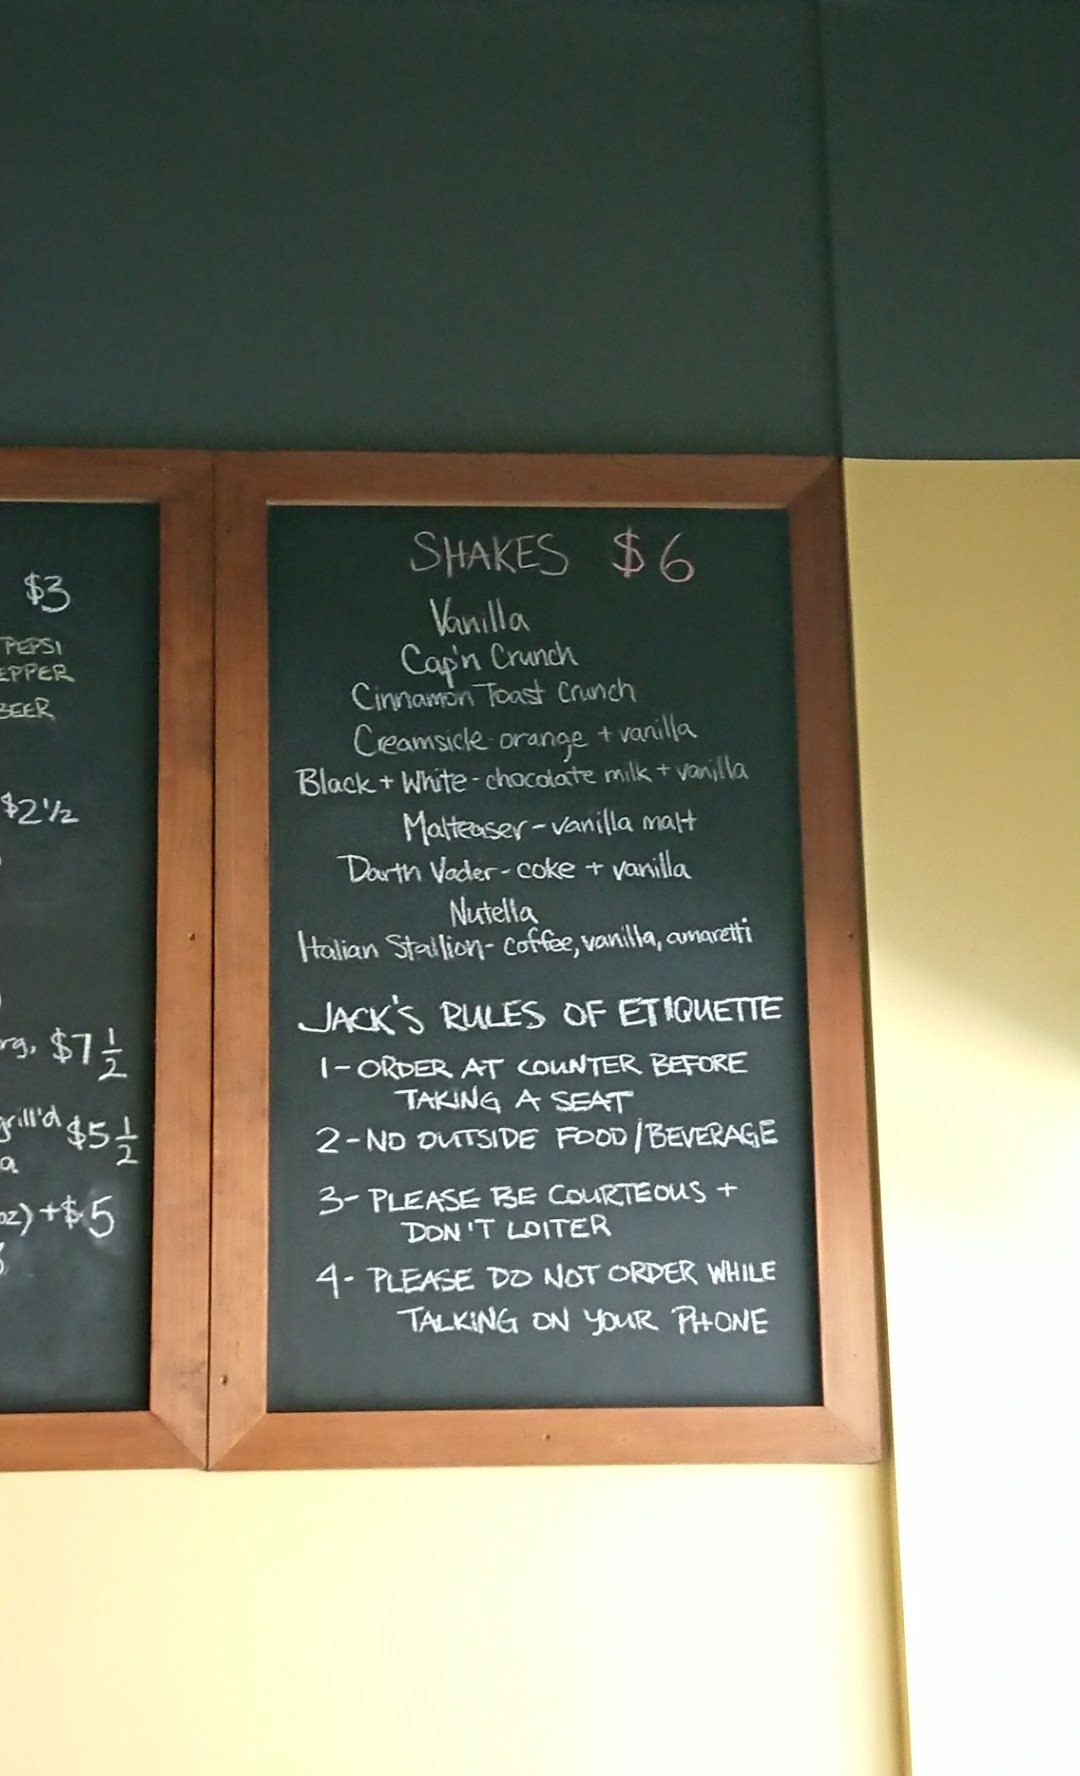 $3
PEPSI
BEER
$2 1/2
$7 1/2
grill'd $5 1/2
oz) +$5
SHAKES $6
Vanilla
Cap'n Crunch
Cinnamon Toast Crunch
Creamsicle-orange + vanilla
Black + White-chocolate milk + vanilla
Malteaser-vanilla malt
Darth Vader-coke + vanilla
Nutella
Italian Stallion-coffee, vanilla, amaretti
JACK'S RULES OF ETIQUETTE
1-ORDER AT COUNTER BEFORE
TAKING A SEAT
2-NO OUTSIDE FOOD/BEVERAGE
3-PLEASE BE COURTEOUS +
DON'T LOITER
4-PLEASE DO NOT ORDER WHILE
TALKING ON YOUR PHONE